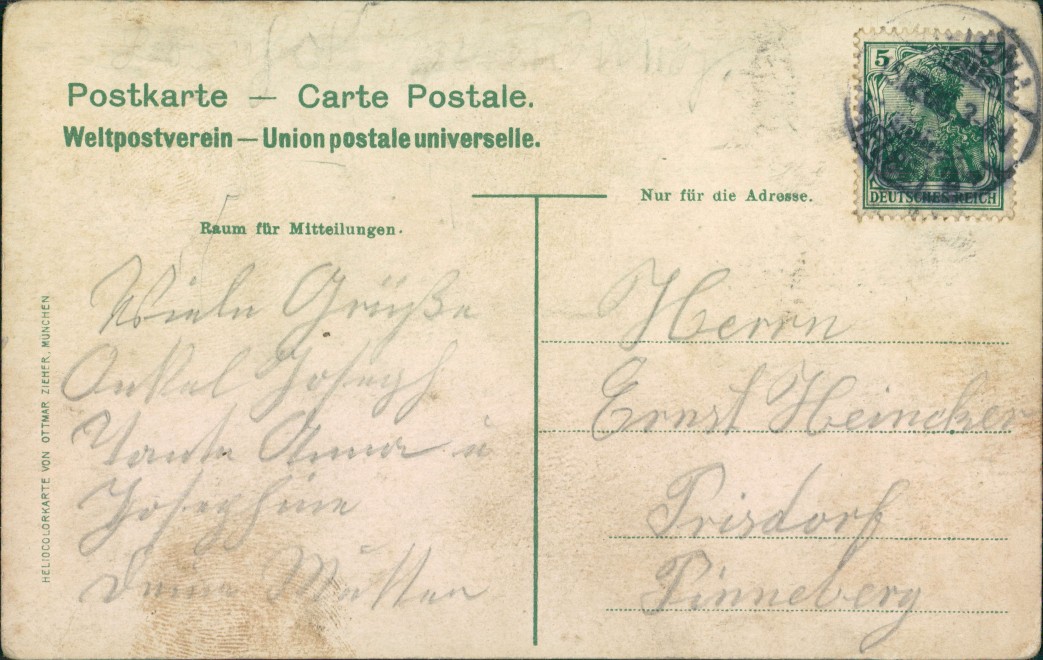 Postkarte — Carte Postale.
Weltpostverein — Union postale universelle.
Nur für die Adresse.
Raum für Mitteilungen.
5
DEUTSCHES REICH
Viele Grüße
Onkel Joseph
Tante Anna u
Josephine
deine Mutter
Herrn
Ernst Heincker
Prisdorf
Pinneberg
HELIOCOLORKARTE VON OTTMAR ZIEHER, MÜNCHEN